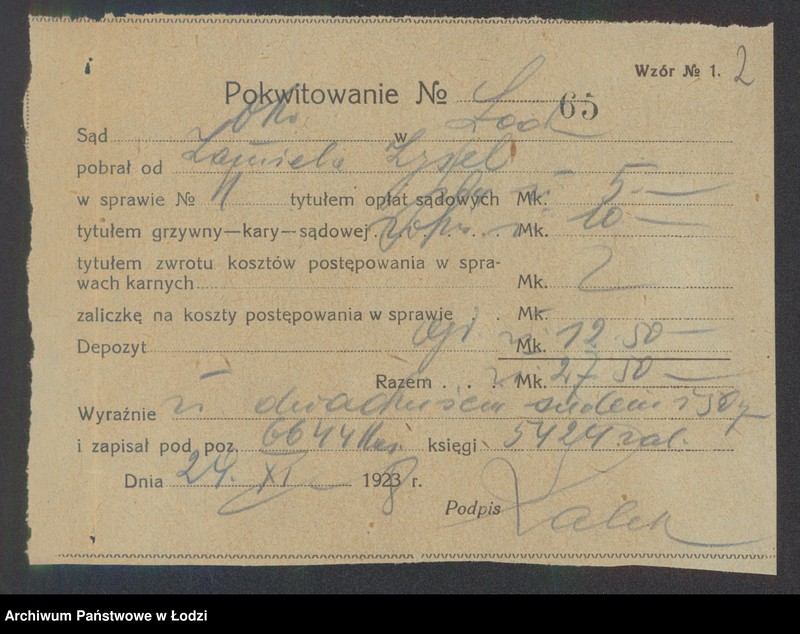 Wzór № 1. 2
Pokwitowanie № 65
Sąd Okr. w Łodzi
pobrał od
w sprawie № tytułem opłat sądowych Mk. 5.—
tytułem grzywny—kary—sądowej . . . . . Mk. 10—
tytułem zwrotu kosztów postępowania w spra-
wach karnych Mk.
zaliczkę na koszty postępowania w sprawie . . Mk.
Depozyt Mk. 12.50—
Razem . . . Mk. 27.50—
Wyraźnie zł dwadzieścia siedem i 50 gr
i zapisał pod poz. 6644 księgi 5424
Dnia 24. XI 1928 r.
Podpis
Archiwum Państwowe w Łodzi